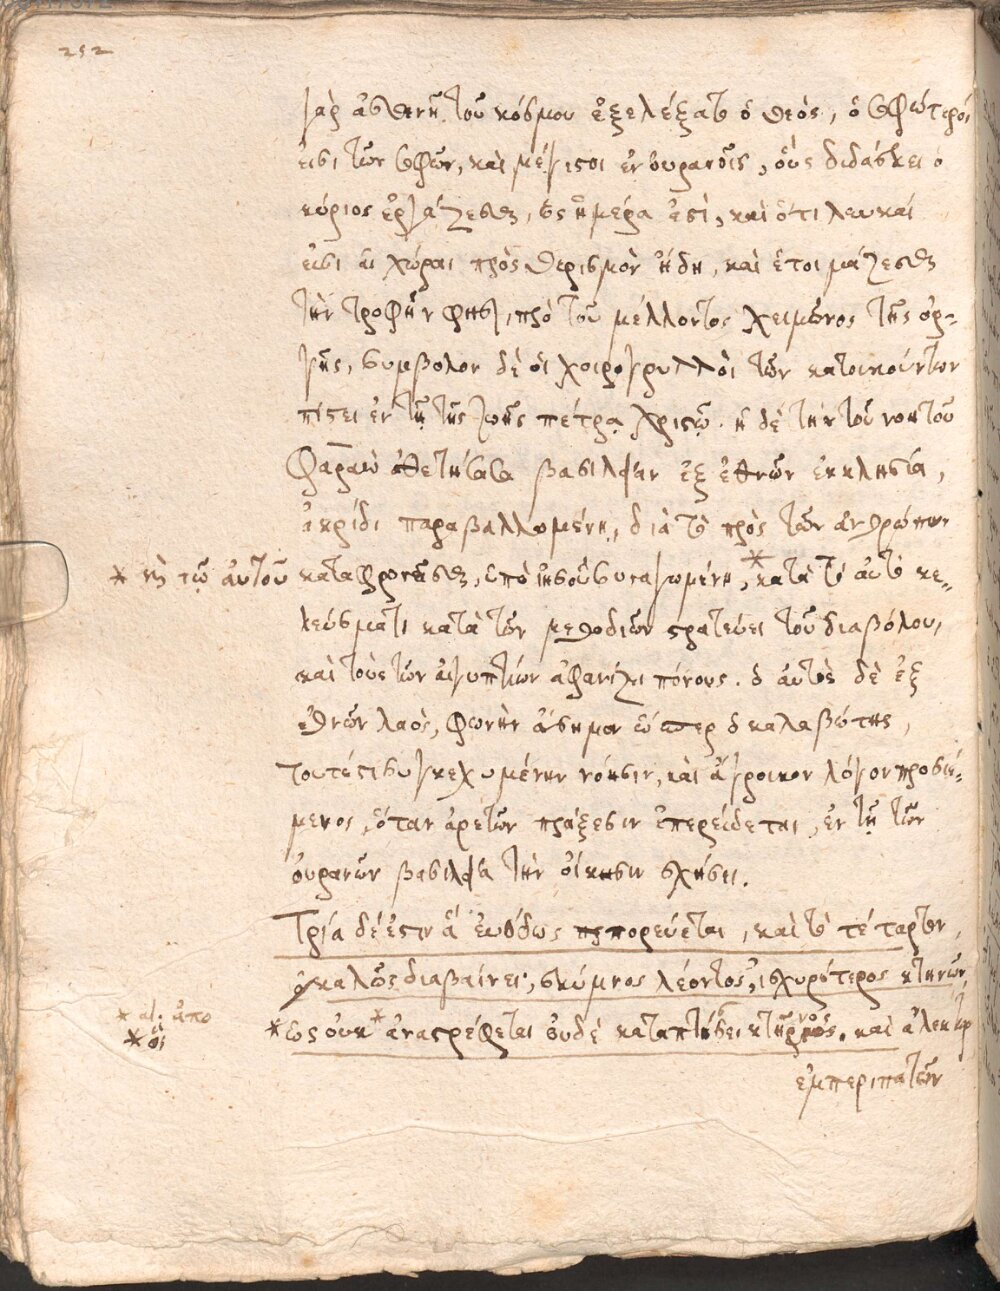 252
γὰρ ἀσθενῆ τοῦ κόσμου ἐξελέξατο ὁ θεὸς, οἱ σοφώτεροί
εἰσι τῶν σοφῶν, καὶ μέγιστοι ἐν οὐρανοῖς, οὓς διδάσκει ὁ
κύριος ἐργάζεσθαι, ἕως ἡμέρα ἐστὶ, καὶ ὅτι λευκαί
εἰσι αἱ χῶραι πρὸς θερισμὸν ἤδη, καὶ ἑτοιμάζεσθαι
τὴν τροφὴν φησὶ, πρὸ τοῦ μέλλοντος χειμῶνος τῆς ὀρ-
γῆς, σύμβολον δὲ οἱ χοιρογρυλλοὶ τῶν κατοικούντων
πίστει ἐν τῇ τῆς ζωῆς πέτρᾳ χριστῷ. ἡ δὲ τὴν τοῦ νοητοῦ
Φαραὼ ἀθετήσασα βασιλείαν ἐξ ἐθνῶν ἐκκλησία,
ἀκρίδι παραβαλλομένη, διὰ τὸ πρὸς τῶν ἀνθρώπων
* καὶ τῷ αὐτοῦ καταφρονεῖσθαι, ὑπὸ ἰησοῦ συναγωμένη, * κατὰ τὸ αὐτὸ κε-
λεύσματι κατὰ τῶν μεθοδιῶν στρατεύει τοῦ διαβόλου,
καὶ τοὺς τῶν αἰγυπτίων ἀφανίζει πόνους. ὁ αὐτὸς δὲ ἐξ
ἐθνῶν λαὸς, φωνὴν ἄσημον ὥσπερ ὁ καλαβώτης,
τουτέστι συγκεχυμένην νόησιν, καὶ ἄγροικον λόγον προϊέ-
μενος, ὅταν ἀρετῶν πράξεσιν ἐπερείδεται, ἐν τῇ τῶν
οὐρανῶν βασιλείᾳ τὴν οἴκησιν σχήσει.
Τρία δέ ἐστιν ἃ εὐόδως πορεύεται, καὶ τὸ τέταρτον,
ὃ καλῶς διαβαίνει, σκύμνος λέοντος, ἰσχυρότερος κτηνῶν
* αἱ: ἀπο
** οἱ
* ὃς οὐκ * ἀναστρέφεται οὐδὲ καταπτήσσει κτῆνος. καὶ ἀλέκτωρ
ἐμπεριπατῶν